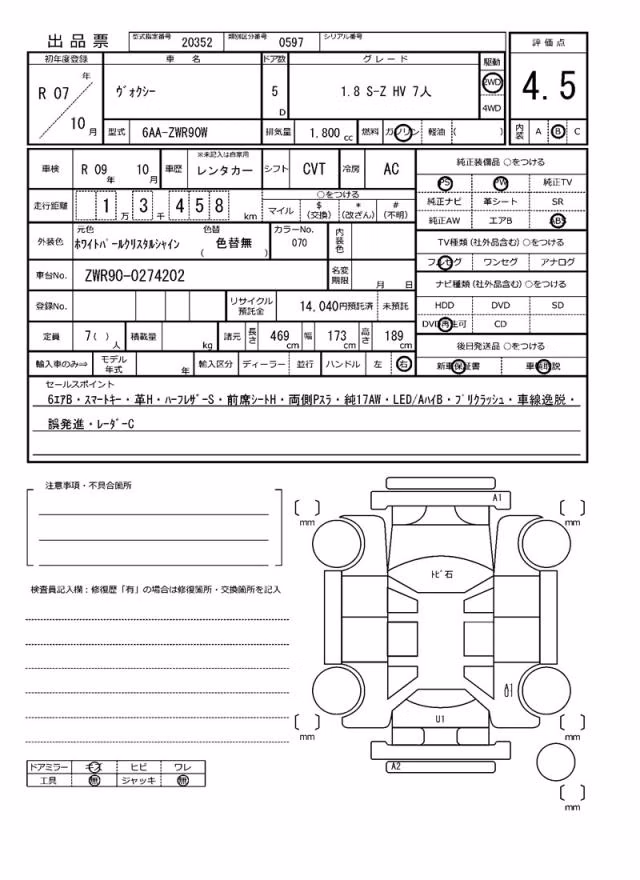 出品票 型式指定番号 20352 類別区分番号 0597 シリアル番号
初年度登録 車名 ドア数 グレード 駆動 評価点
R 07 年 10 月 ヴォクシー 5 D 1.8 S-Z HV 7人 2WD 4WD 4.5
型式 6AA-ZWR90W 排気量 1.800 cc 燃料 ガソリン 軽油 ( ) 内装 A B C
車検 R 09 年 10 月 車歴 ※未記入は自家用 レンタカー シフト CVT 冷房 AC
走行距離 1 万 3 千 4 5 8 km ○をつける マイル $ (交換) * (改ざん) # (不明)
外装色 元色 ホワイトパールクリスタルシャイン 色替 ( 色替無 ) カラーNo. 070 内装色
車台No. ZWR90-0274202 名変期限 月 日
登録No. リサイクル預託金 14,040円預託済 未預託
定員 7( ) 人 積載量 kg 諸元 長さ 469 cm 幅 173 cm 高さ 189 cm
輸入車のみ⇒ モデル年式 年 輸入区分 ディーラー 並行 ハンドル 左 右
純正装備品 ○をつける
PS PW 純正TV
純正ナビ 革シート SR
純正AW エアB ABS
TV種類 (社外品含む) ○をつける
フルセグ ワンセグ アナログ
ナビ種類 (社外品含む) ○をつける
HDD DVD SD
DVD再生可 CD
後日発送品 ○をつける
新車保証書 車輌取説
セールスポイント
6エアB・スマートキー・革H・ハーフレザーS・前席シートH・両側Pスラ・純17AW・LED/AハイB・プリクラッシュ・車線逸脱・
誤発進・レーダーC
注意事項・不具合箇所
検査員記入欄：修復歴「有」の場合は修復箇所・交換箇所を記入
ドアミラー キズ ヒビ ワレ
工具 無 ジャッキ 無
A1
mm mm
トビ石
A1
U1
U1
mm mm
A2
mm